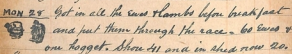 MON 28 Got in all the Ewes & Lambs before breakfast
and put them through the race - 60 Ewes &
one hogget. Shore 41 and in shed now 20.